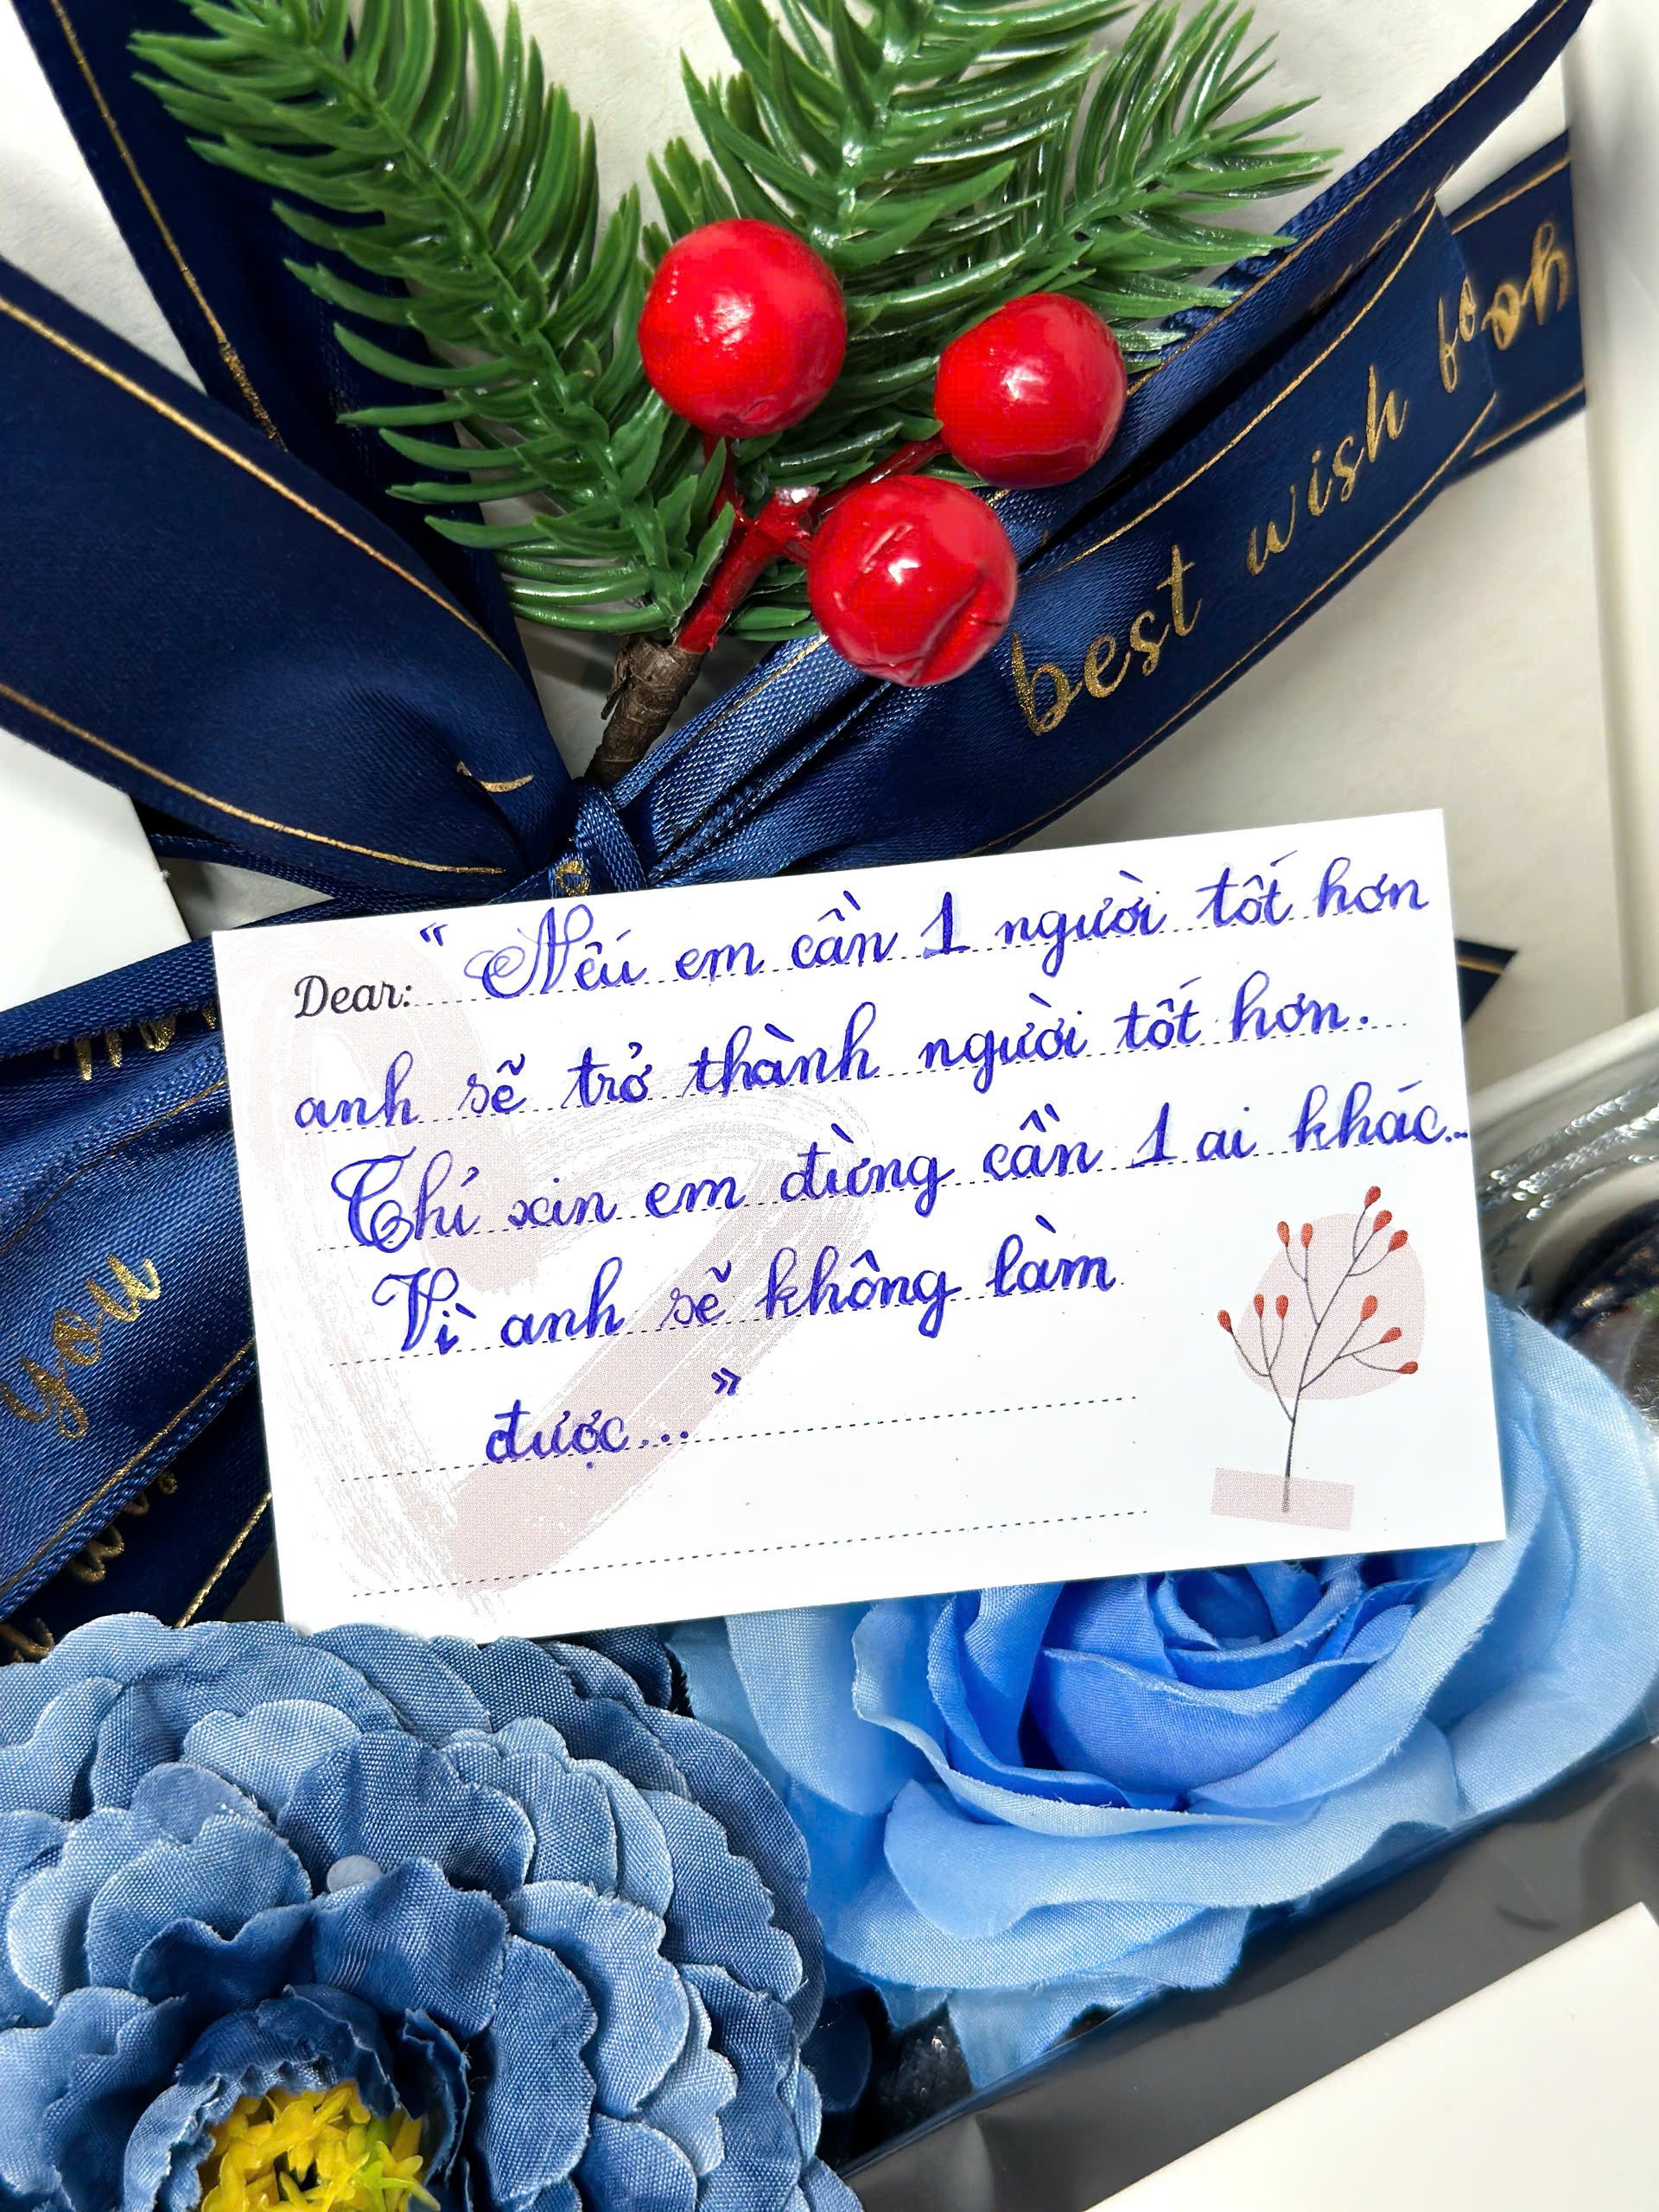 best wish for
you
Dear: “ Nếu em cần 1 người tốt hơn
anh sẽ trở thành người tốt hơn.
Chỉ xin em đừng cần 1 ai khác...
Vì anh sẽ không làm
được... ”
you